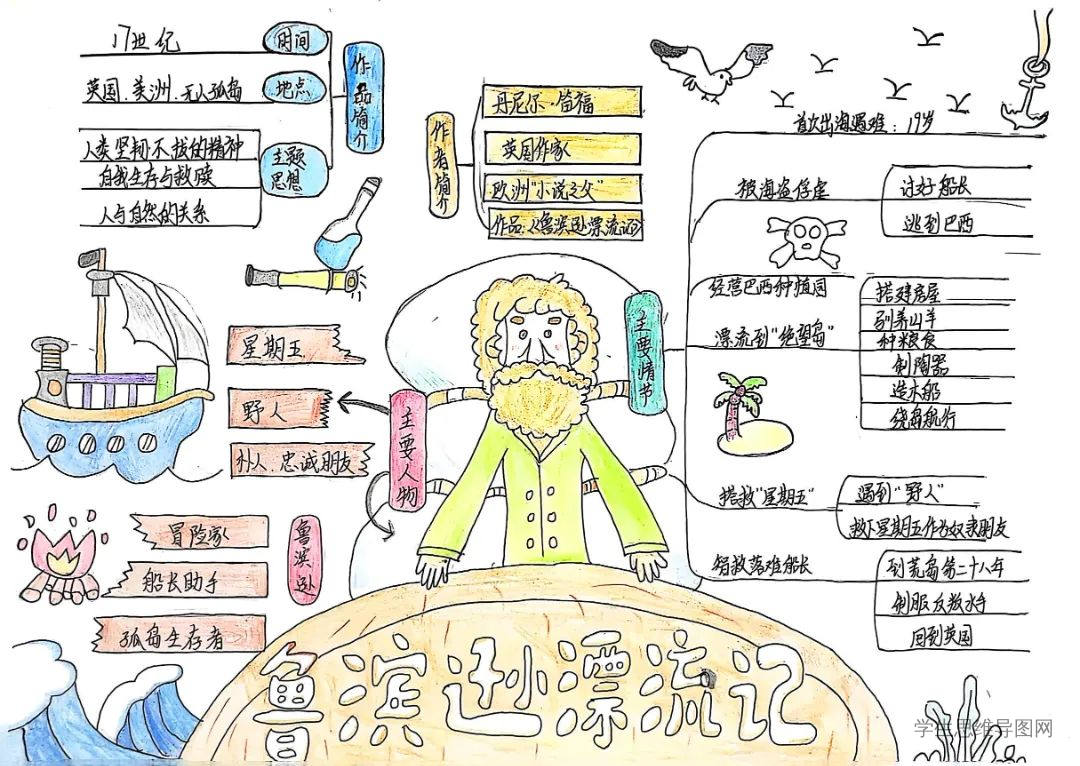 17世纪
时间
英国、美洲、无人孤岛
地点
作品简介
人类坚韧不拔的精神
自我生存与救赎
人与自然的关系
主题
思想
作者简介
丹尼尔·笛福
英国作家
欧洲"小说之父"
作品:《鲁滨逊漂流记》
首次出海遇难:19岁
被海盗俘虏
讨好船长
逃到巴西
经营巴西种植园
漂流到"绝望岛"
搭建房屋
驯养山羊
种粮食
制陶器
造木船
绕岛航行
主要情节
星期五
野人
仆人、忠诚朋友
主要人物
搭救"星期五"
遇到"野人"
救下星期五作为奴隶朋友
智救落难船长
到荒岛第二十八年
制服反叛水手
回到英国
冒险家
船长助手
孤岛生存者
鲁滨逊
鲁滨逊漂流记
学生思维导图网